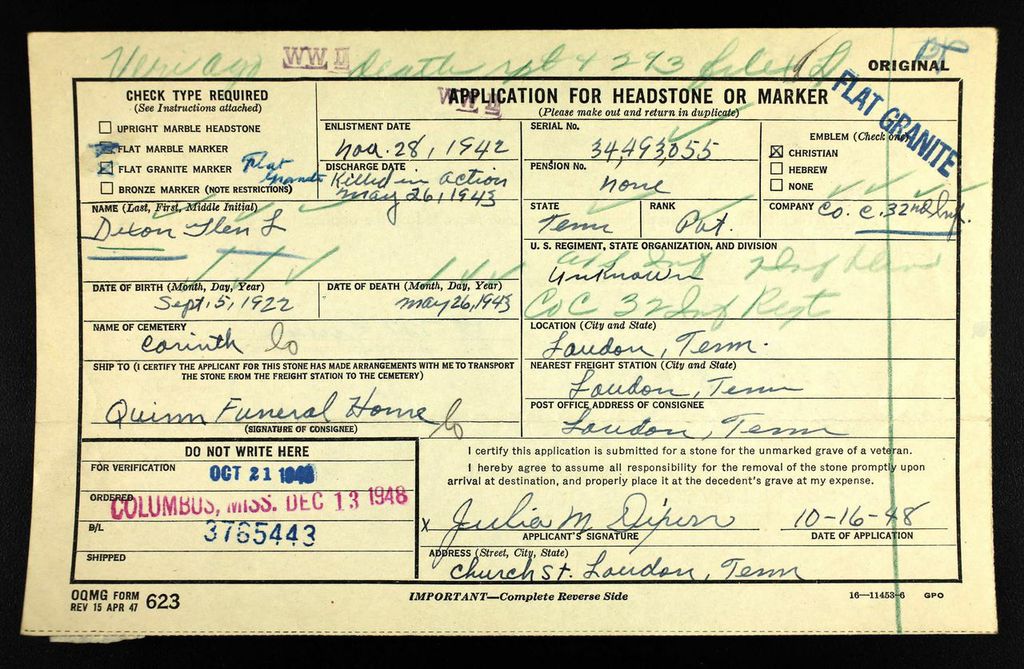 WW II
Death rpt 4293
ORIGINAL
CHECK TYPE REQUIRED
(See Instructions attached)
UPRIGHT MARBLE HEADSTONE
FLAT MARBLE MARKER
FLAT GRANITE MARKER Flat Granite
BRONZE MARKER (NOTE RESTRICTIONS)
WW II
APPLICATION FOR HEADSTONE OR MARKER
(Please make out and return in duplicate)
FLAT GRANITE
ENLISTMENT DATE
Nov. 28, 1942
DISCHARGE DATE
Killed in action
May 26, 1943
SERIAL No.
34,493,055
PENSION No.
none
EMBLEM (Check one)
CHRISTIAN
HEBREW
NONE
NAME (Last, First, Middle Initial)
Dixon Glen L
STATE
Tenn
RANK
Pvt.
COMPANY Co. C. 32nd Inf.
U. S. REGIMENT, STATE ORGANIZATION, AND DIVISION
Unknown
Co C 32 Inf Regt
DATE OF BIRTH (Month, Day, Year)
Sept. 5, 1922
DATE OF DEATH (Month, Day, Year)
May 26, 1943
NAME OF CEMETERY
Corinth
LOCATION (City and State)
Loudon, Tenn.
SHIP TO (I CERTIFY THE APPLICANT FOR THIS STONE HAS MADE ARRANGEMENTS WITH ME TO TRANSPORT
THE STONE FROM THE FREIGHT STATION TO THE CEMETERY)
Quinn Funeral Home
(SIGNATURE OF CONSIGNEE)
NEAREST FREIGHT STATION (City and State)
Loudon, Tenn
POST OFFICE ADDRESS OF CONSIGNEE
Loudon, Tenn
DO NOT WRITE HERE
FOR VERIFICATION
OCT 21 1948
ORDERED
COLUMBUS, MISS. DEC 13 1948
B/L
3765443
SHIPPED
I certify this application is submitted for a stone for the unmarked grave of a veteran.
I hereby agree to assume all responsibility for the removal of the stone promptly upon
arrival at destination, and properly place it at the decedent's grave at my expense.
x Julia M. Dixon
APPLICANT'S SIGNATURE
10-16-48
DATE OF APPLICATION
ADDRESS (Street, City, State)
Church St. Loudon, Tenn
OQMG FORM
REV 15 APR 47 623
IMPORTANT—Complete Reverse Side
16—11453-6 GPO